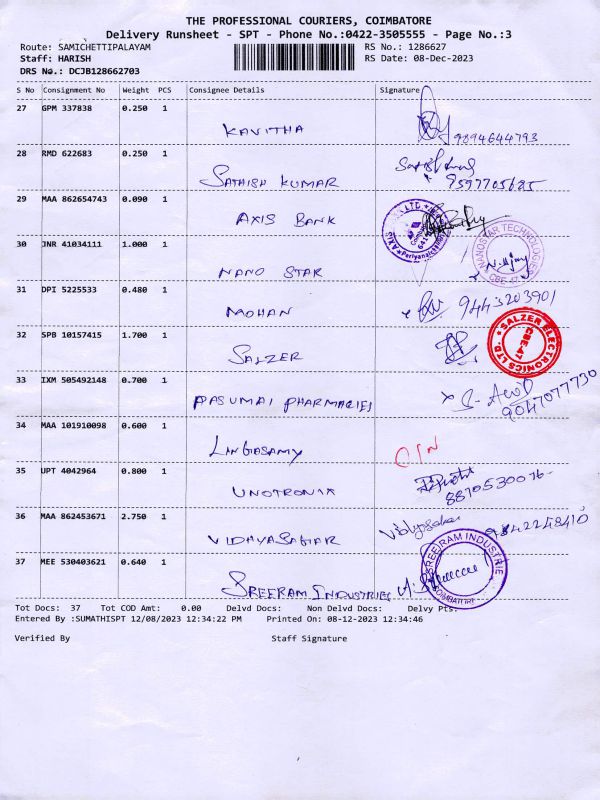 THE PROFESSIONAL COURIERS, COIMBATORE
Delivery Runsheet - SPT - Phone No.:0422-3505555 - Page No.:3
Route: SAMICHETTIPALAYAM RS No.: 1286627
Staff: HARISH RS Date: 08-Dec-2023
DRS No.: DCJB128662703
S No Consignment No Weight PCS Consignee Details Signature
27 GPM 337838 0.250 1
KAVITHA 9894644793
28 RMD 622683 0.250 1
SATHISH KUMAR Satish Kumar
9597705685
29 MAA 862654743 0.090 1
AXIS BANK
30 JNR 41034111 1.000 1
NANO STAR NANOSTAR TECHNOLOGIES CBE-47
31 DPI 5225533 0.480 1
MOHAN 9443203901
32 SPB 10157415 1.700 1
SALZER SALZER ELECTRONICS LTD. CBE-47
33 IXM 505492148 0.700 1
PASUMAI PHARMACIES 9047077730
34 MAA 101910098 0.600 1
LINGASAMY
35 UPT 4042964 0.800 1
UNOTRONIX
8870530076
36 MAA 862453671 2.750 1
VIDHYASAGAR Vidhyasagar 9842248410
37 MEE 530403621 0.640 1
SREERAM INDUSTRIES SREERAM INDUSTRIE COIMBATORE
Tot Docs: 37 Tot COD Amt: 0.00 Delvd Docs: Non Delvd Docs: Delvy Pts:
Entered By :SUMATHISPT 12/08/2023 12:34:22 PM Printed On: 08-12-2023 12:34:46
Verified By Staff Signature